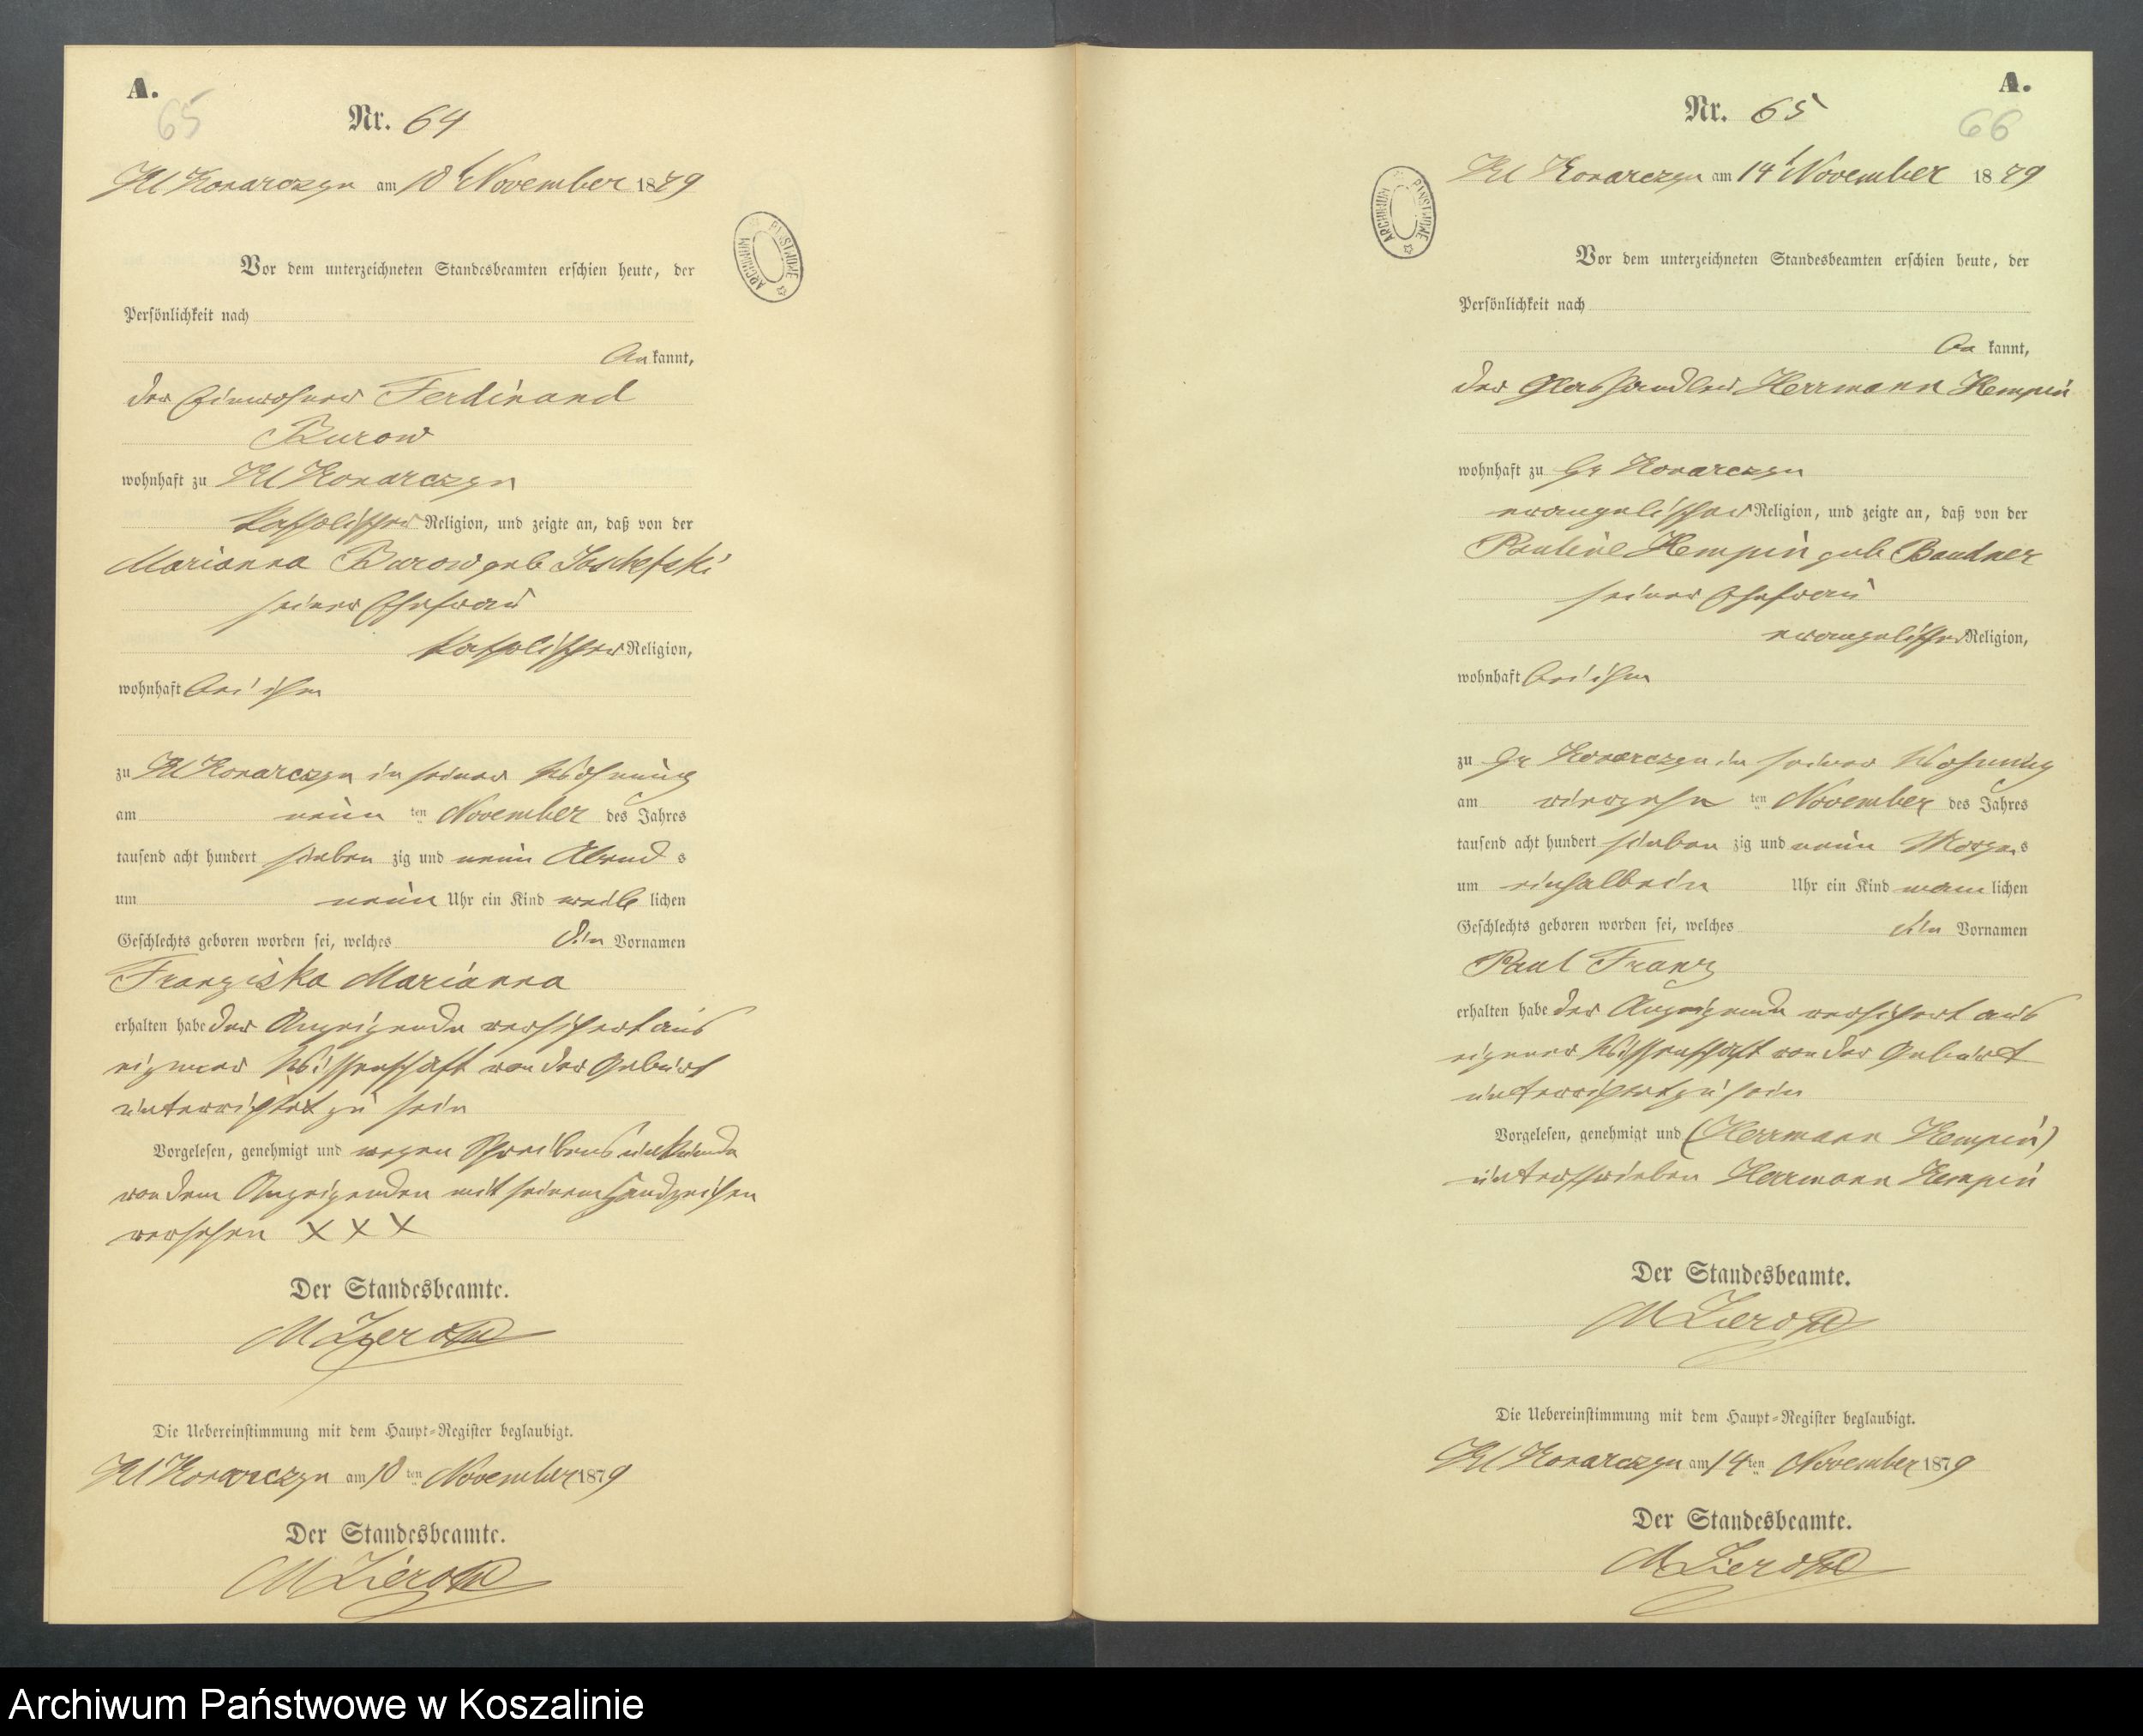 A.
65
Nr. 64
Kl Konarczyn am 10t November 1879
Vor dem unterzeichneten Standesbeamten erschien heute, der
Persönlichkeit nach
be kannt,
der Einwohner Ferdinand
Burow
wohnhaft zu Kl Konarczyn
katholischer Religion, und zeigte an, daß von der
Marianna Burow geb
seiner Ehefrau
katholischer Religion,
wohnhaft bei ihm
zu Kl Konarczyn in seiner Wohnung
am neun ten November des Jahres
tausend acht hundert sieben zig und neun Abend s
um neun Uhr ein Kind weib lichen
Geschlechts geboren worden sei, welches die Vornamen
Franziska Marianna
erhalten habe der Anzeigende versichert aus
eigener Wissenschaft von der Geburt
unterrichtet zu sein
Vorgelesen, genehmigt und wegen Schreibensunkunde
von dem Anzeigenden mit seinem Handzeichen
versehen X X X
Der Standesbeamte.
Die Uebereinstimmung mit dem Haupt-Register beglaubigt.
Kl Konarczyn am 10 ten November 1879
Der Standesbeamte.
A.
66
Nr. 65
Kl Konarczyn am 14t November 1879
ARCHIWUM PAŃSTWOWE
Vor dem unterzeichneten Standesbeamten erschien heute, der
Persönlichkeit nach
be kannt,
der Glashändler Herrmann Kempin
wohnhaft zu Gr Konarczyn
evangelischer Religion, und zeigte an, daß von der
Pauline Kempin geb Baudner
seiner Ehefrau
evangelischer Religion,
wohnhaft bei ihm
zu Gr Konarczyn in seiner Wohnung
am vierzehn ten November des Jahres
tausend acht hundert sieben zig und neun Morgens
um einhalbein Uhr ein Kind männ lichen
Geschlechts geboren worden sei, welches die Vornamen
Paul Franz
erhalten habe der Anzeigende versichert aus
eigener Wissenschaft von der Geburt
unterrichtet zu sein
Vorgelesen, genehmigt und (Herrmann Kempin)
unterschrieben Herrmann Kempin
Der Standesbeamte.
Die Uebereinstimmung mit dem Haupt-Register beglaubigt.
Kl Konarczyn am 14 ten November 1879
Der Standesbeamte.
Archiwum Państwowe w Koszalinie